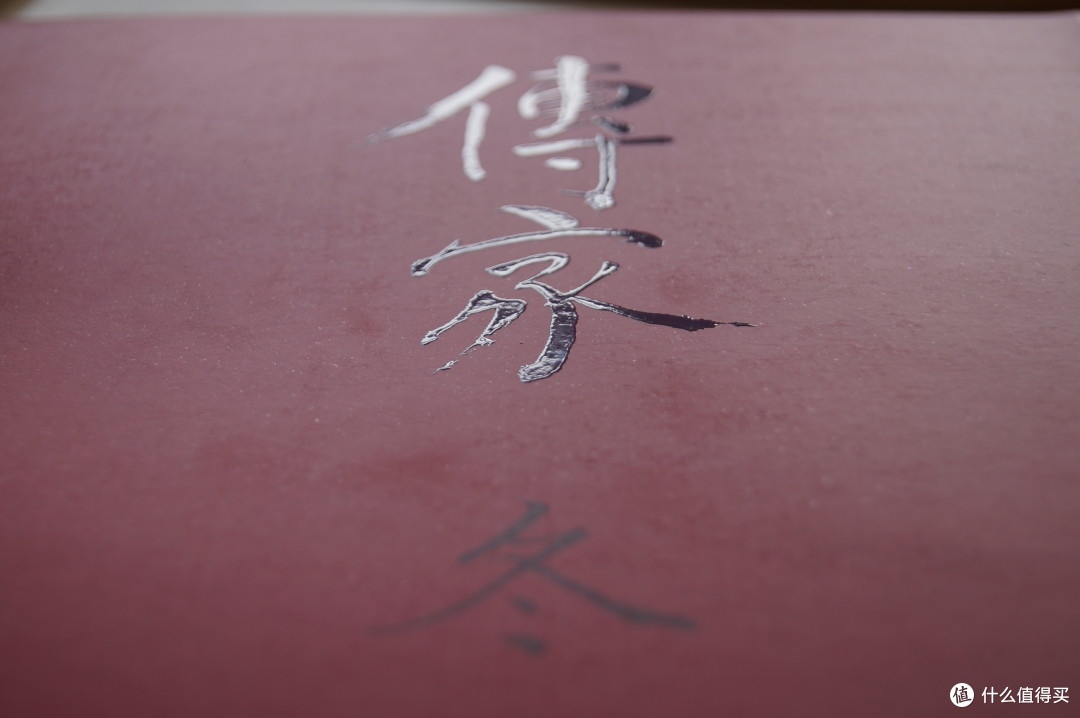 傳家
冬
值 什么值得买